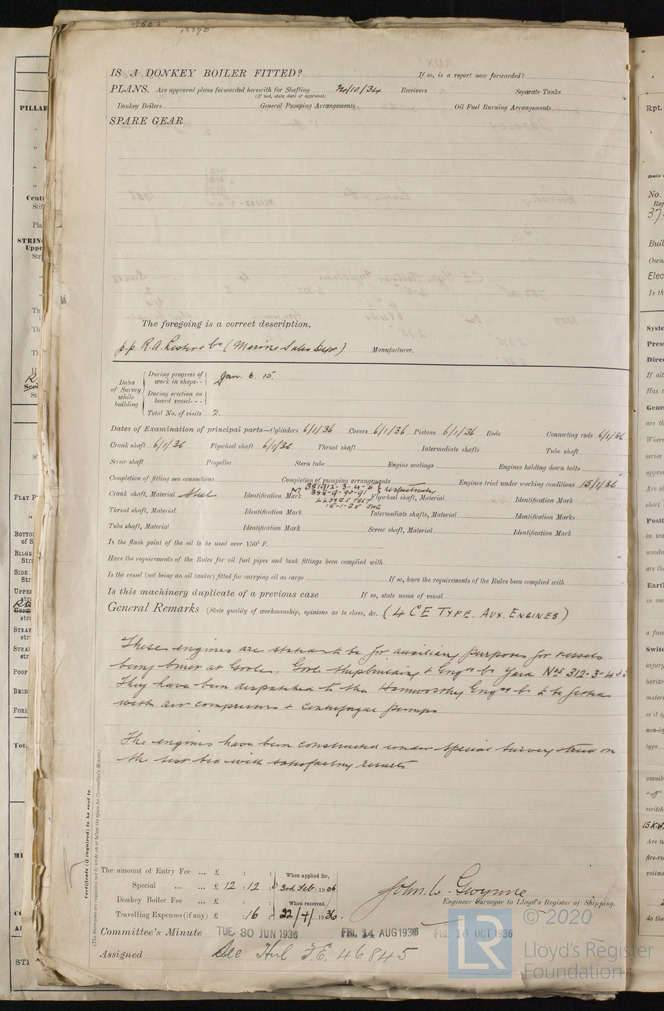 IS A DONKEY BOILER FITTED? If so, is a report now forwarded?
PLANS. Are approved plans forwarded herewith for Shafting 20/10/34 Receivers Separate Tanks
(If not, state date of approval)
Donkey Boilers General Pumping Arrangements Oil Fuel Burning Arrangements
SPARE GEAR
The foregoing is a correct description,
p.p. R.A. Lister & Co (Marine Sales Dept.) Manufacturer.
Dates of Survey while building
During progress of work in shops-- Jan. 6. 15.
During erection on board vessel---
Total No. of visits 2.
Dates of Examination of principal parts—Cylinders 6/1/36 Covers 6/1/36 Pistons 6/1/36 Rods Connecting rods 6/1/36
Crank shaft 6/1/36 Flywheel shaft 6/1/36 Thrust shaft Intermediate shafts Tube shaft
Screw shaft Propeller Stern tube Engine seatings Engines holding down bolts
Completion of fitting sea connections Completion of pumping arrangements Engines tried under working conditions 15/1/36
Crank shaft, Material Steel Identification Mark Flywheel shaft, Material Identification Mark
Thrust shaft, Material Identification Mark Intermediate shafts, Material Identification Marks
Tube shaft, Material Identification Mark Screw shaft, Material Identification Mark
Is the flash point of the oil to be used over 150° F.
Have the requirements of the Rules for oil fuel pipes and tank fittings been complied with
Is the vessel (not being an oil tanker) fitted for carrying oil as cargo If so, have the requirements of the Rules been complied with
Is this machinery duplicate of a previous case If so, state name of vessel
General Remarks (State quality of workmanship, opinions as to class, &c. (4 CE TYPE. AUX. ENGINES)
These engines are stated to be for auxiliary purposes for vessels
being built at Goole, Goole Shipbuilding & Eng. Co Yard Nos 312-3-4
They have been despatched to the Hamworthy Eng. Co to be fitted
with air compressors & centrifugal pumps
The engines have been constructed under special survey tried on
the test bed with satisfactory results
Certificate (if required) to be sent to
(The Surveyors are requested not to write on or below the space for Committee's Minute.)
The amount of Entry Fee ... £ : : When applied for,
Special ... ... £ 12 : 12 : 0 3rd Feb. 1936
Donkey Boiler Fee ... £ : : When received,
Travelling Expenses (if any) £ : 16 : 22/4/1936.
John C. Gwynne
Engineer Surveyor to Lloyd's Register of Shipping.
Committee's Minute TUE 30 JUN 1936 FRI. 14 AUG 1936 FRI. 16 OCT 1936
Assigned See Hul F.E. 46845
LR
© 2020
Lloyd's Register
Foundation